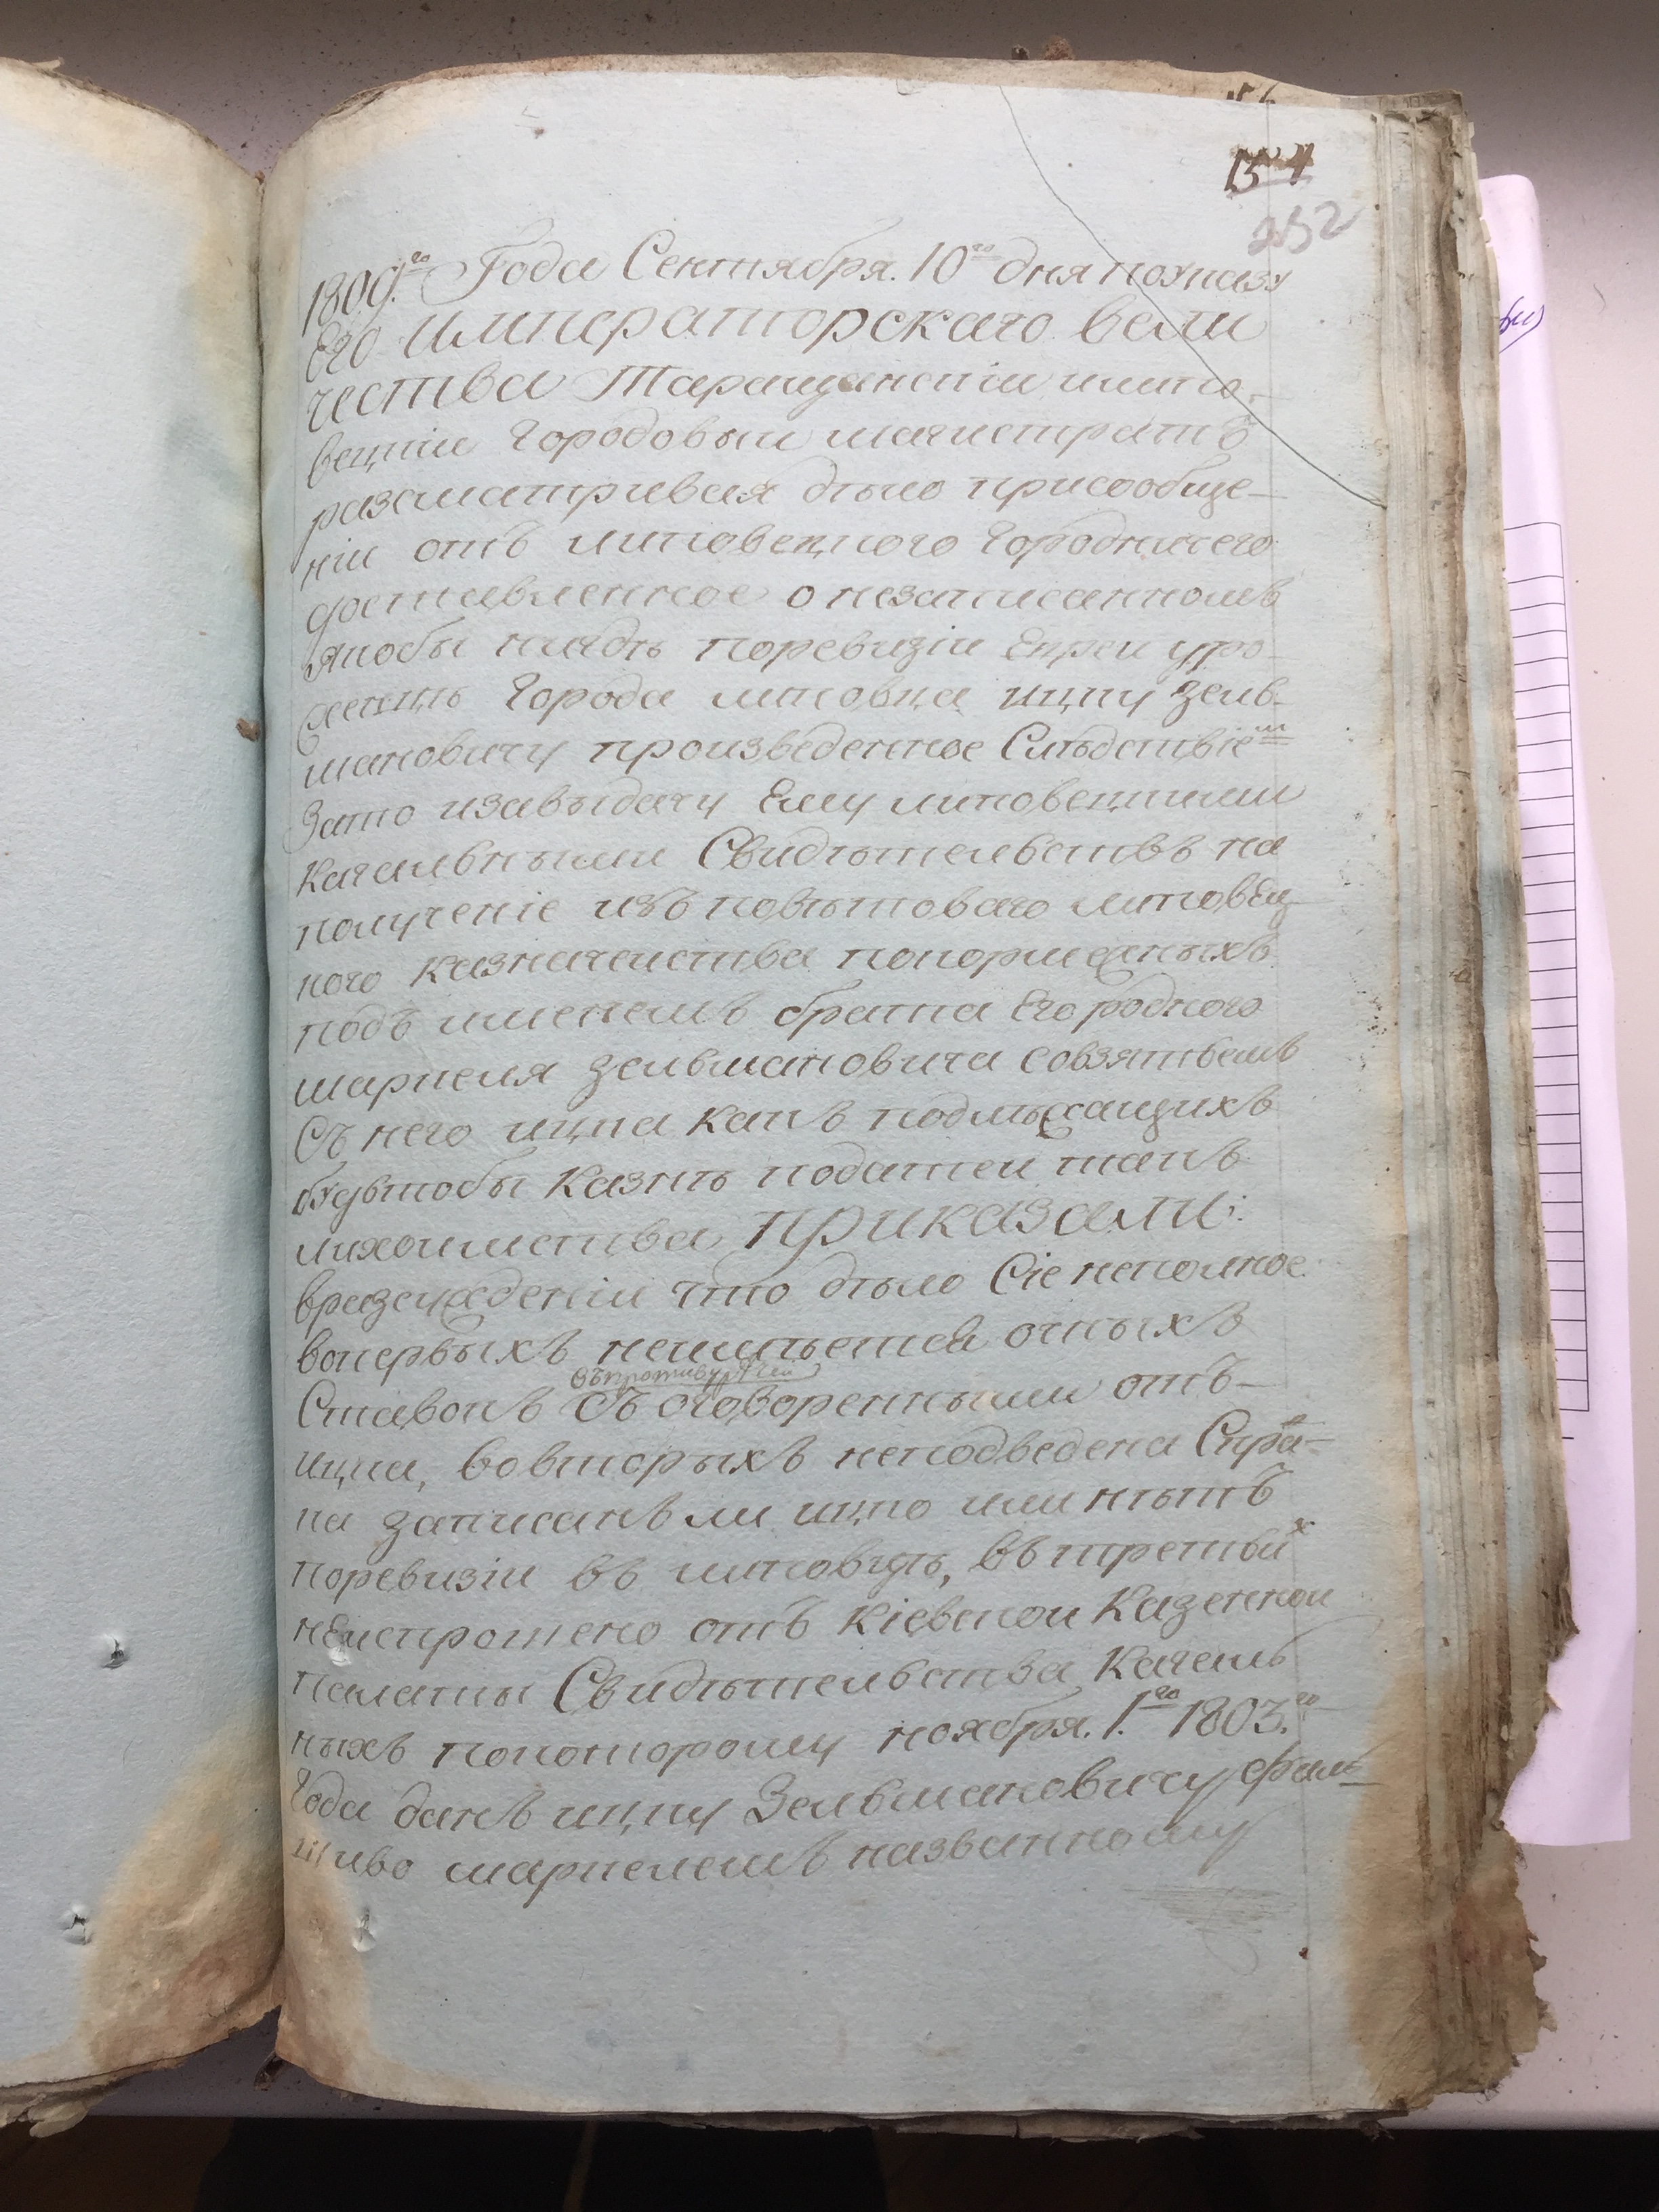 154
252
1809.го Года Сентября. 10го дня поуказу
Его императорскаго вели
чества Таращанскіи липо-
вецкіи городовыи магистратъ
разсматривая дѣло присообще-
ніи отъ липовецкого городничего
доставленное о незаписанномъ
якобы нигдѣ поревизіи Евреи уро-
женцѣ города липовца ицку зель-
мановичу произведенное Слѣдствіем
Зато изавыдачу Ему липовецкими
кагальными Свидѣтельствъ на
полученіе изъ повѣтоваго липовец
кого казначеиства покормежныхъ
подъ именемъ брата Его родного
шаркеля зельмановича совзятьемъ
Съ него ицка какъ подлежащихъ
будьтобы казнѣ податеи такъ
лихоимства приказали:
вразсужденіи что дѣло Сіе неполное
вопервыхъ неимѣется очныхъ
въ противурѣчіи
Ставокъ Съ оговоренными отъ
ицка, вовторыхъ неподведена Спра-
ка записанъ ли ицко или нѣтъ
поревизіи въ липовцѣ, въ третьих
неиспрошено отъ кіевскои Казеннои
палаты Свидѣтельства Кагаль
ныхъ покоторому ноября. 1.го 1803.го
Года данъ ицку Зельмановичу фаль
шиво шаркелемъ названному